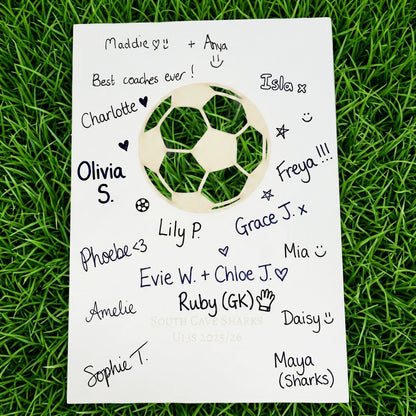 Maddie ♡☺ + Anya ☺
Best coaches ever!
Isla x
Charlotte ♥
Olivia S.
Freya!!!
Lily P.
Grace J. x
Phoebe <3
Mia ☺
Evie W. + Chloe J. ♡
Amelie
Ruby (GK)
South Cave Sharks
U13s 2025/26
Daisy ☺
Sophie T.
Maya
(Sharks)